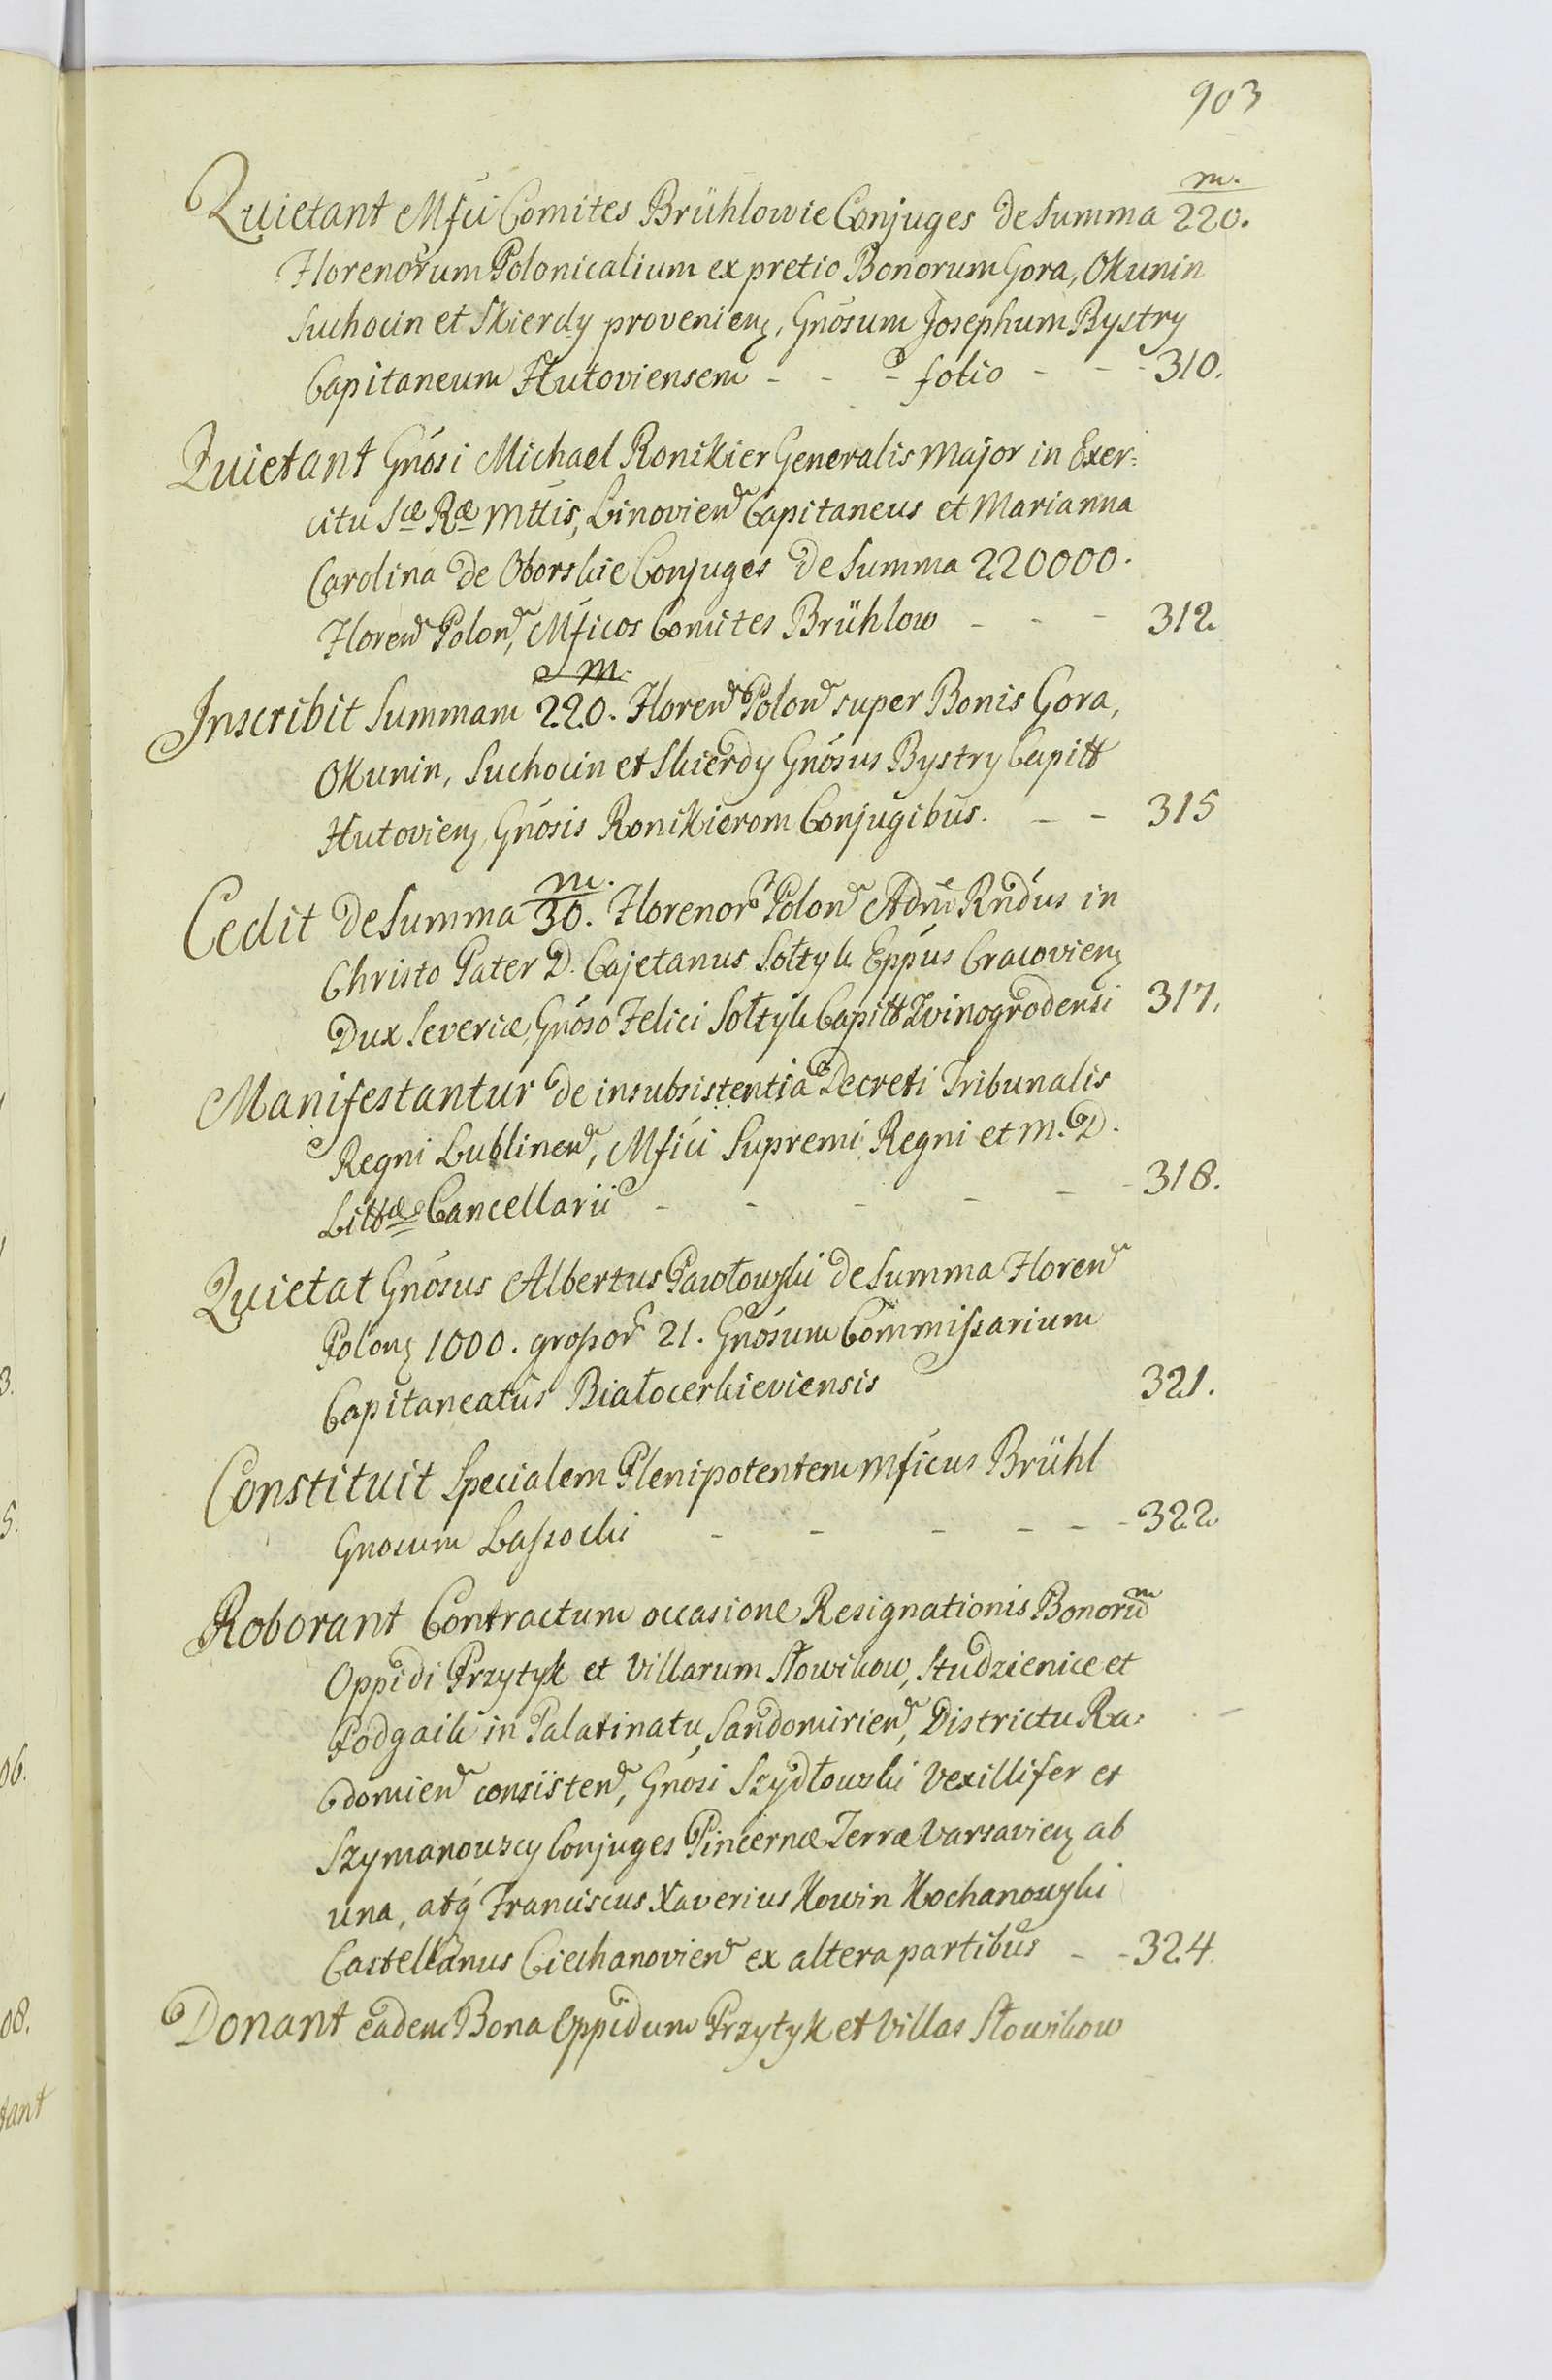 903
Quietant Mfci Comites Brühlowie Conjuges de Summa 220. m.
Florenorum Polonicalium ex pretio Bonorum Gora, Okunin
Suchocin et Skierdy provenienz, Gnosum Josephum Bystry
Capitaneum Hutoviensem - - - folio - - - 310.
Quietant Gnosi Michael Ronikier Generalis Major in Exer:
citu Sæ Ræ Mttis, Linovien Capitaneus et Marianna
Carolina de Oborskie Conjuges de Summa 220000.
Floren Polon, Mficos Comites Brühlow - - - 312.
m.
Inscribit Summam 220. Floren Polon super Bonis Gora,
Okunin, Suchocin et Skierdy Gnosus Bystry Capitt
Hutovienz, Gnosis Ronikierom Conjugibus. - - 315
m.
Cedit de Summa 30. Florenor Polon Adm Rndus in
Christo Pater D. Cajetanus Sołtyk Eppus Cracovienz
Dux Severiæ, Gnoso Felici Sołtyk Capitt Zvinogrodensi 317.
Manifestantur de insubsistentia Decreti Tribunalis
Regni Lublinen, Mfici Supremi Regni et M. D.
Littæ Cancellarii - - - - - - 318.
Quietat Gnosus Albertus Pawłowski de Summa Floren
Polonz 1000. grossor 21. Gnosum Commissarium
Capitaneatus Białocerkieviensis 321.
Constituit Specialem Plenipotentem Mficus Brühl
Gnosum Lassocki - - - - - - 322.
Roborant Contractum occasione Resignationis Bonorum
Oppidi Przytyk et Villarum Słowikow, Studzienice et
Podgaik in Palatinatu, Sandomirien, Districtu Ra:
domien consisten, Gnosi Szydłowski Vexillifer et
Szymanowscy Conjuges Pincernæ Terræ Varsavienz ab
una, atq Franciscus Xaverius Kowin Kochanowski
Castellanus Ciechanovien ex altera partibus - - 324.
Donant eadem Bona Oppidum Przytyk et Villas Słowikow